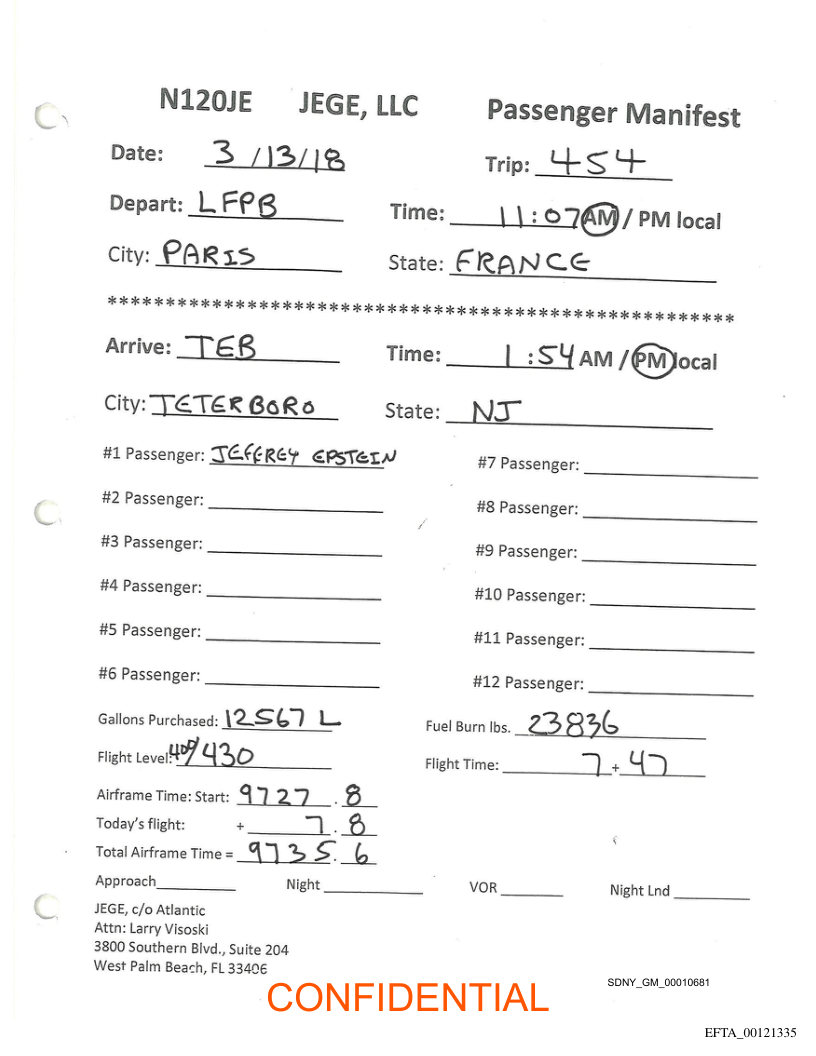 N120JE JEGE, LLC Passenger Manifest
Date: 3/13/18 Trip: 454
Depart: LFPB Time: 11:07 AM / PM local
City: PARIS State: FRANCE
*****************************************************
Arrive: TEB Time: 1:54 AM / PM local
City: TETERBORO State: NJ
#1 Passenger: JEFFREY EPSTEIN #7 Passenger:
#2 Passenger: #8 Passenger:
#3 Passenger: #9 Passenger:
#4 Passenger: #10 Passenger:
#5 Passenger: #11 Passenger:
#6 Passenger: #12 Passenger:
Gallons Purchased: 12567 L Fuel Burn lbs. 23836
Flight Level: 400/430 Flight Time: 7 + 47
Airframe Time: Start: 9727.8
Today's flight: + 7.8
Total Airframe Time = 9735.6
Approach Night VOR Night Lnd
JEGE, c/o Atlantic
Attn: Larry Visoski
3800 Southern Blvd., Suite 204
West Palm Beach, FL 33406
SDNY_GM_00010681
CONFIDENTIAL
EFTA_00121335